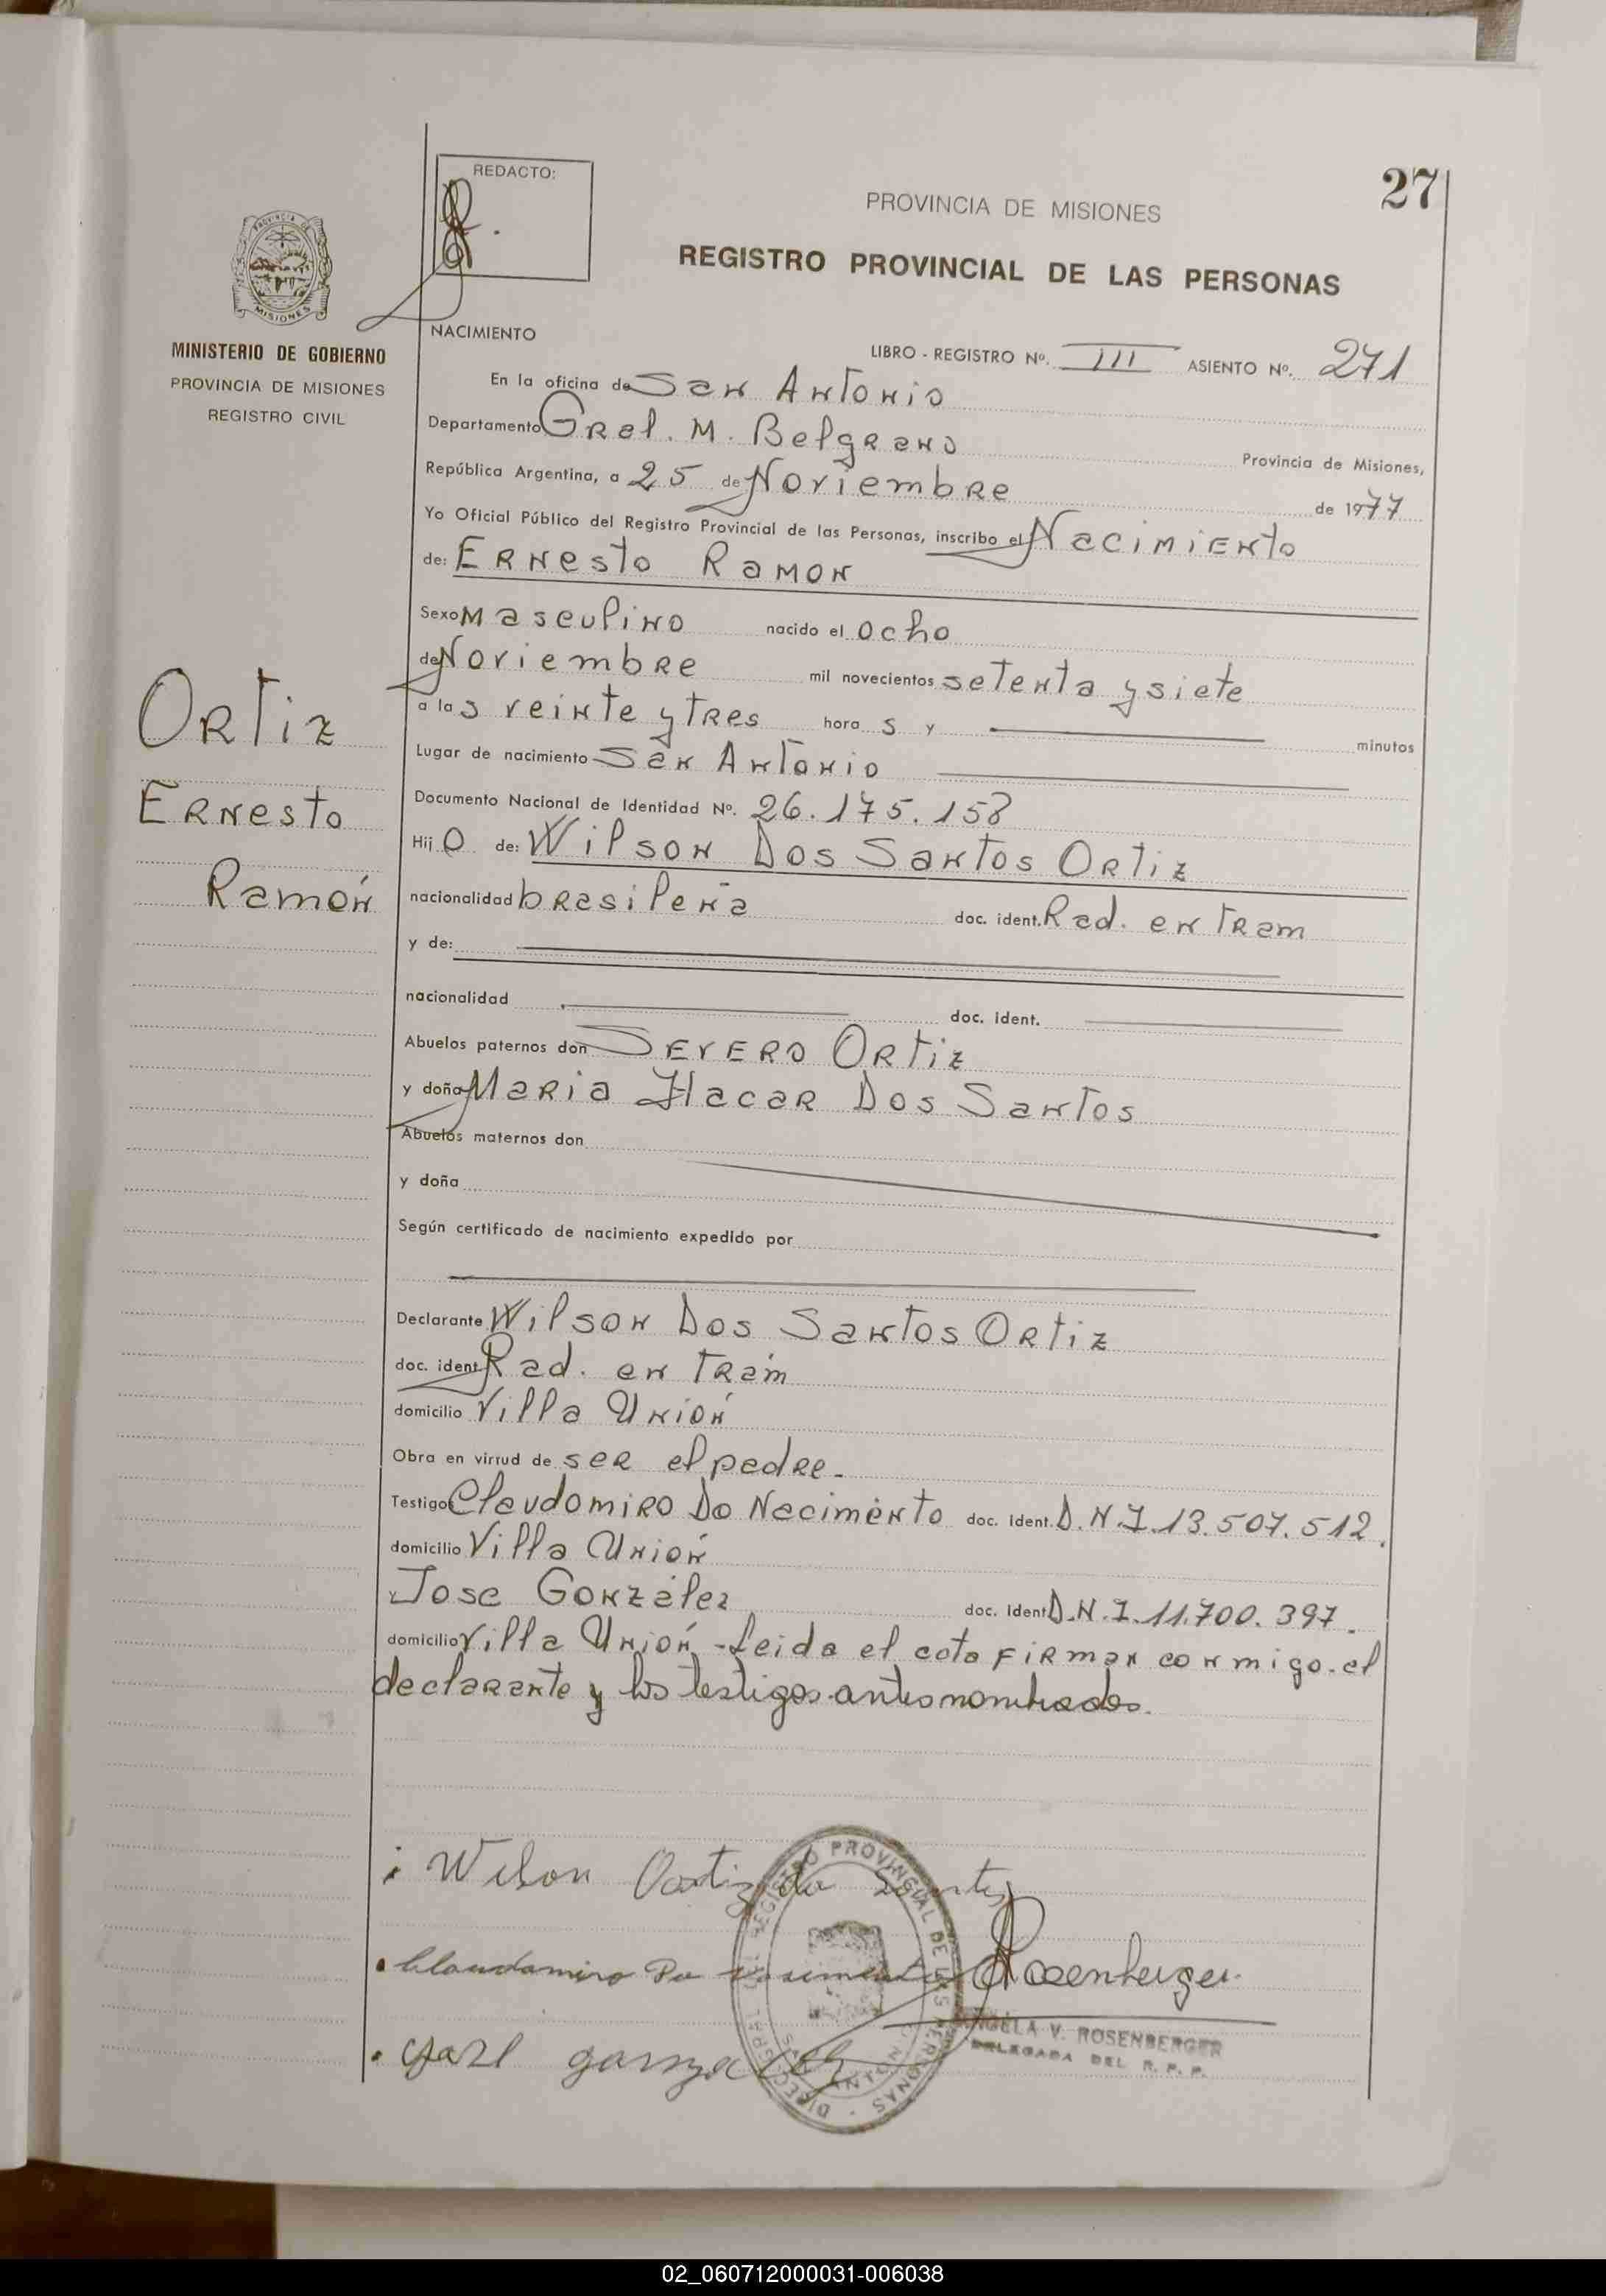 27
REDACTO:
PROVINCIA DE MISIONES
REGISTRO PROVINCIAL DE LAS PERSONAS
PROVINCIA DE
MISIONES
MINISTERIO DE GOBIERNO
PROVINCIA DE MISIONES
REGISTRO CIVIL
NACIMIENTO
LIBRO - REGISTRO Nº. III ASIENTO Nº. 271
En la oficina de San Antonio
Departamento Gral. M. Belgrano Provincia de Misiones,
República Argentina, a 25 de Noviembre de 1977
Yo Oficial Público del Registro Provincial de las Personas, inscribo el Nacimiento
de: Ernesto Ramon
Sexo Masculino nacido el ocho
de Noviembre mil novecientos setenta y siete
a las veinte y tres horas y minutos
Lugar de nacimiento San Antonio
Documento Nacional de Identidad Nº. 26.175.158
Hijo de: Wilson Dos Santos Ortiz
nacionalidad brasileña doc. ident. Rad. en Tram
y de:
nacionalidad doc. ident.
Abuelos paternos don Severo Ortiz
y doña Maria Dos Santos
Abuelos maternos don
y doña
Según certificado de nacimiento expedido por
Declarante Wilson Dos Santos Ortiz
doc. ident. Rad. en Tram
domicilio Villa Unión
Obra en virtud de ser el padre.
Testigos Claudomiro Do Nacimento doc. ident. D.N.I. 13.507.512.
domicilio Villa Unión
y Jose González doc. ident. D.N.I. 11.700.397.
domicilio Villa Unión - leida el cota firman conmigo el
declarante y los testigos antes nombrados.
Ortiz
Ernesto
Ramón
Wilson Ortiz do Santos
Claudomiro Do nasimento
Rosenberger
José gonzalez
REGISTRO PROVINCIAL DE LAS PERSONAS
ANGELA V. ROSENBERGER
DELEGADA DEL R. P. P.
02_060712000031-006038